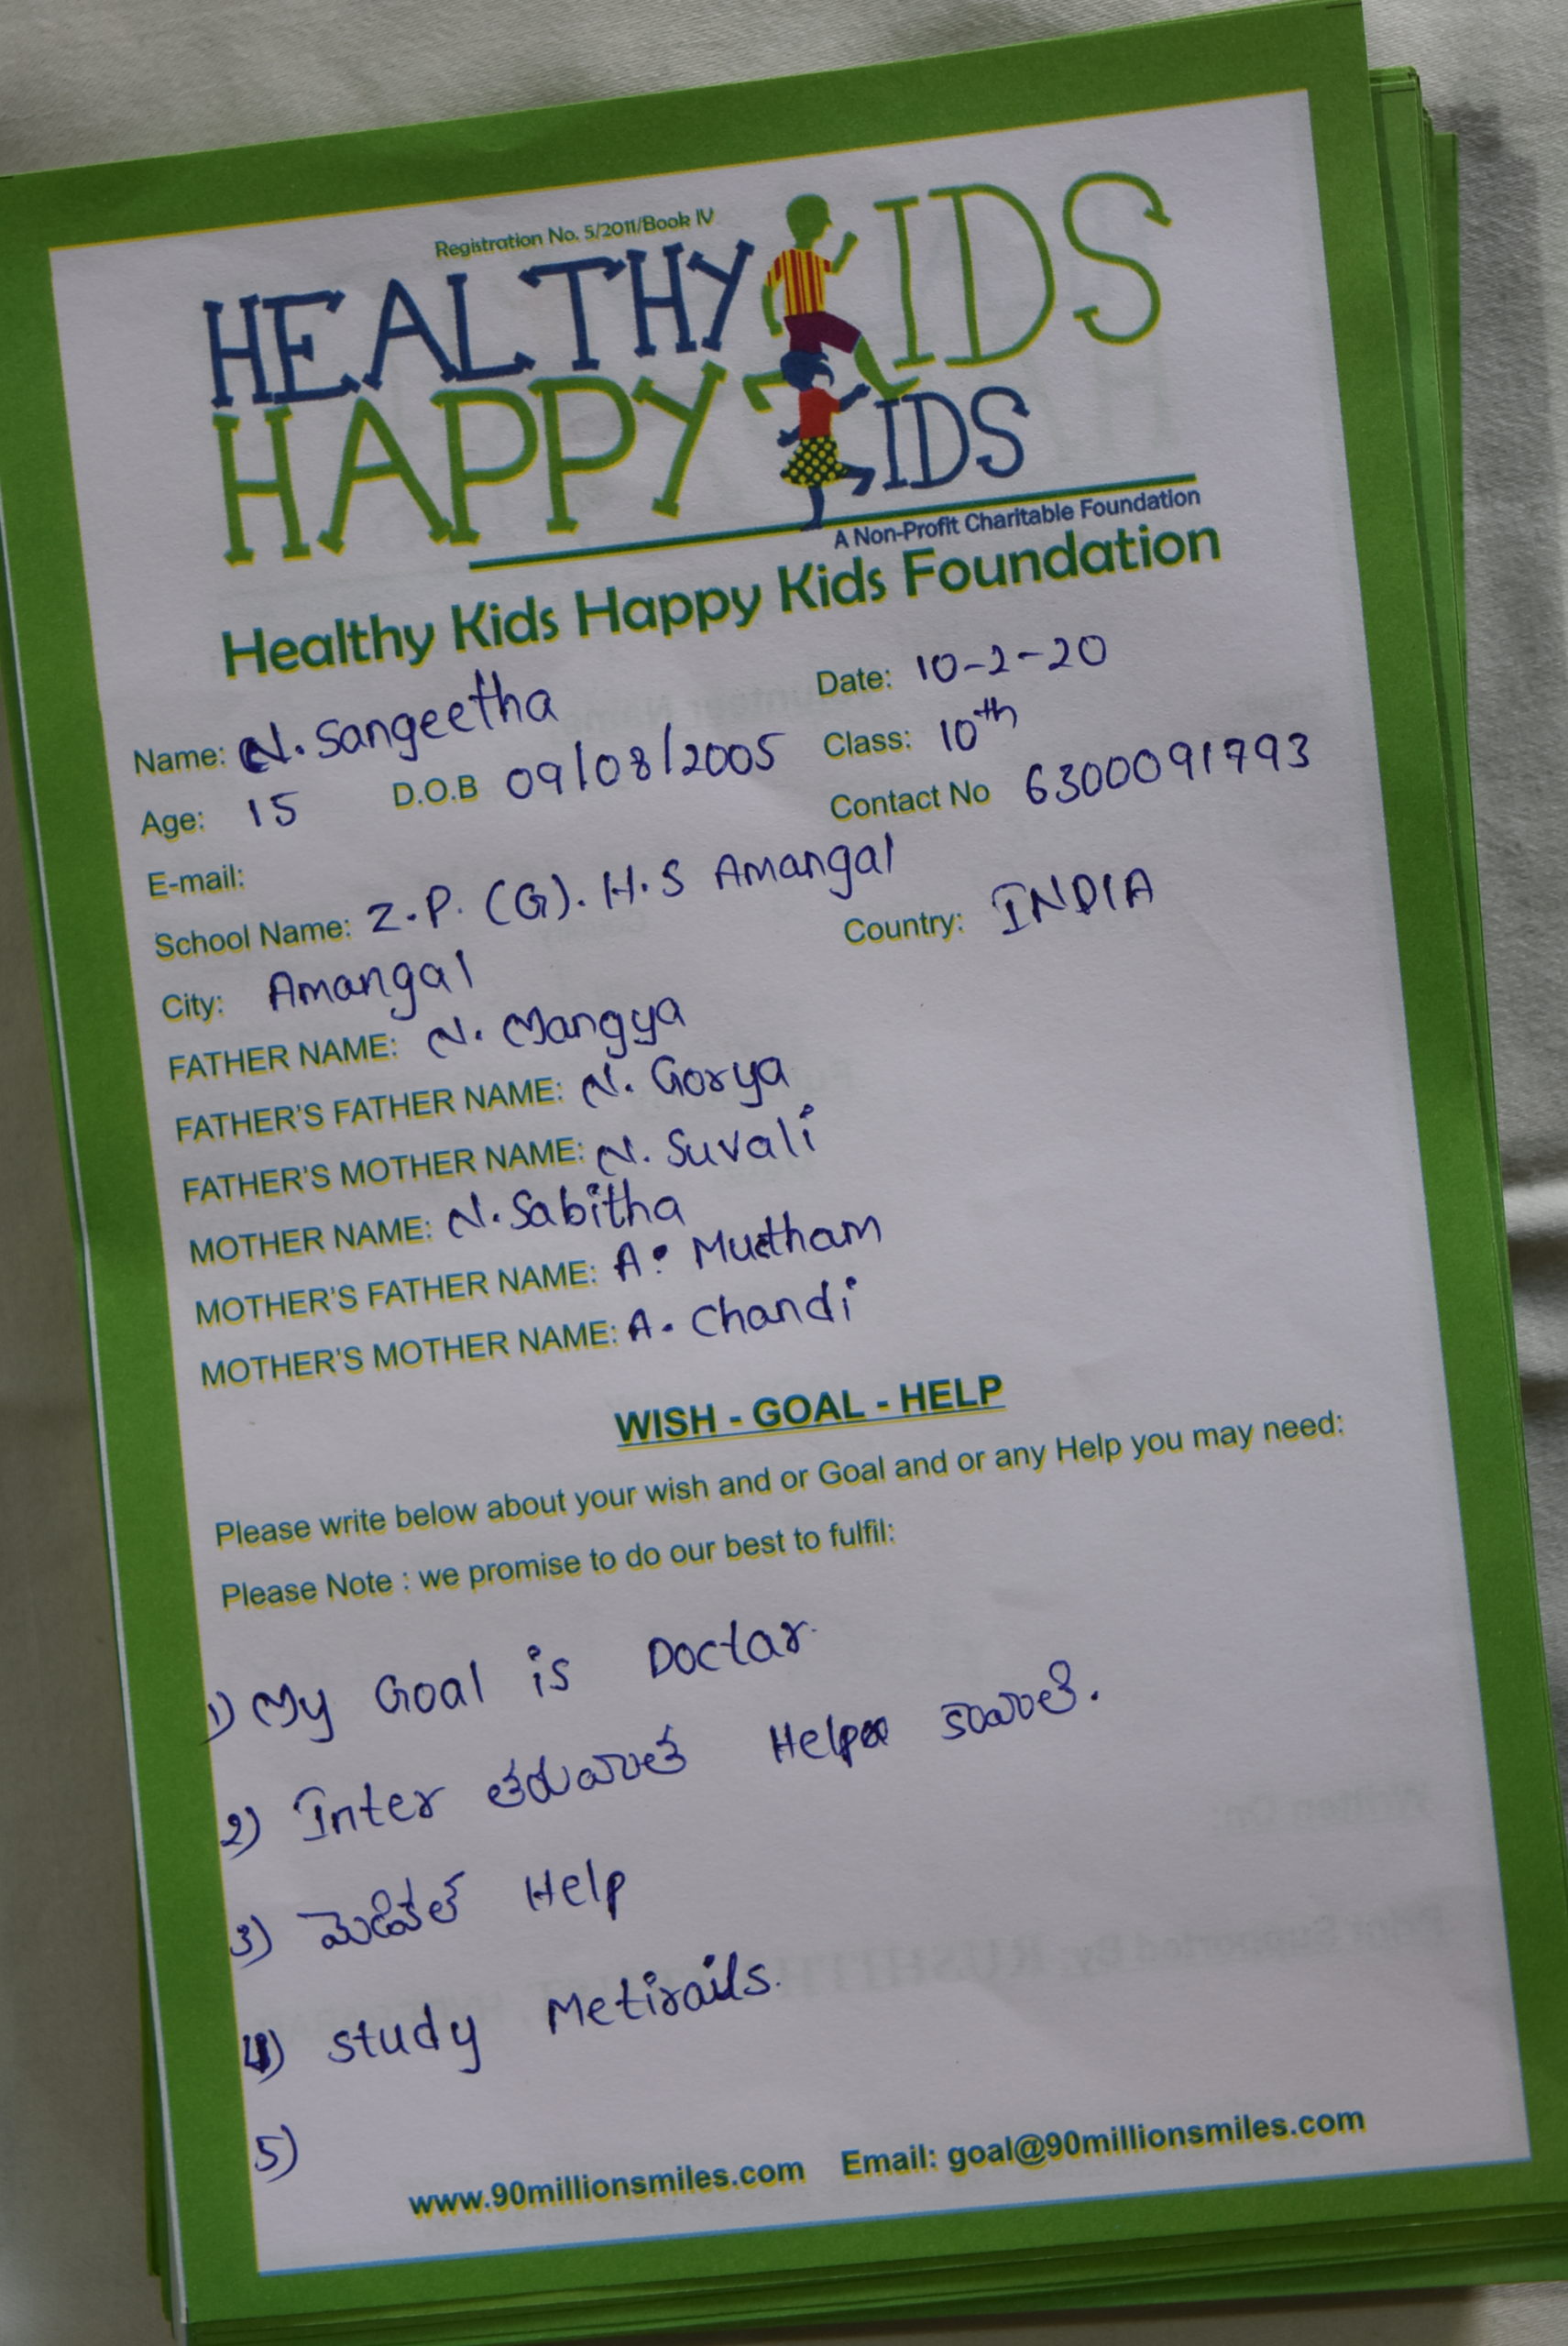 Registration No. 5/2011/Book IV
HEALTHY KIDS
HAPPY KIDS
A Non-Profit Charitable Foundation
Healthy Kids Happy Kids Foundation
Name: N. Sangeetha Date: 10-2-20
Age: 15 D.O.B 09/08/2005 Class: 10th
E-mail: Contact No 6300091793
School Name: Z.P. (G). H.S Amangal
City: Amangal Country: INDIA
FATHER NAME: N. Mangya
FATHER'S FATHER NAME: N. Gorya
FATHER'S MOTHER NAME: N. Suvali
MOTHER NAME: N. Sabitha
MOTHER'S FATHER NAME: A. Mutham
MOTHER'S MOTHER NAME: A. Chandi
WISH - GOAL - HELP
Please write below about your wish and or Goal and or any Help you may need:
Please Note : we promise to do our best to fulfil:
1) My Goal is Doctar.
2) Inter తరువాత Help కావాలి.
3) Help
4) study Metirails.
5)
www.90millionsmiles.com Email: goal@90millionsmiles.com